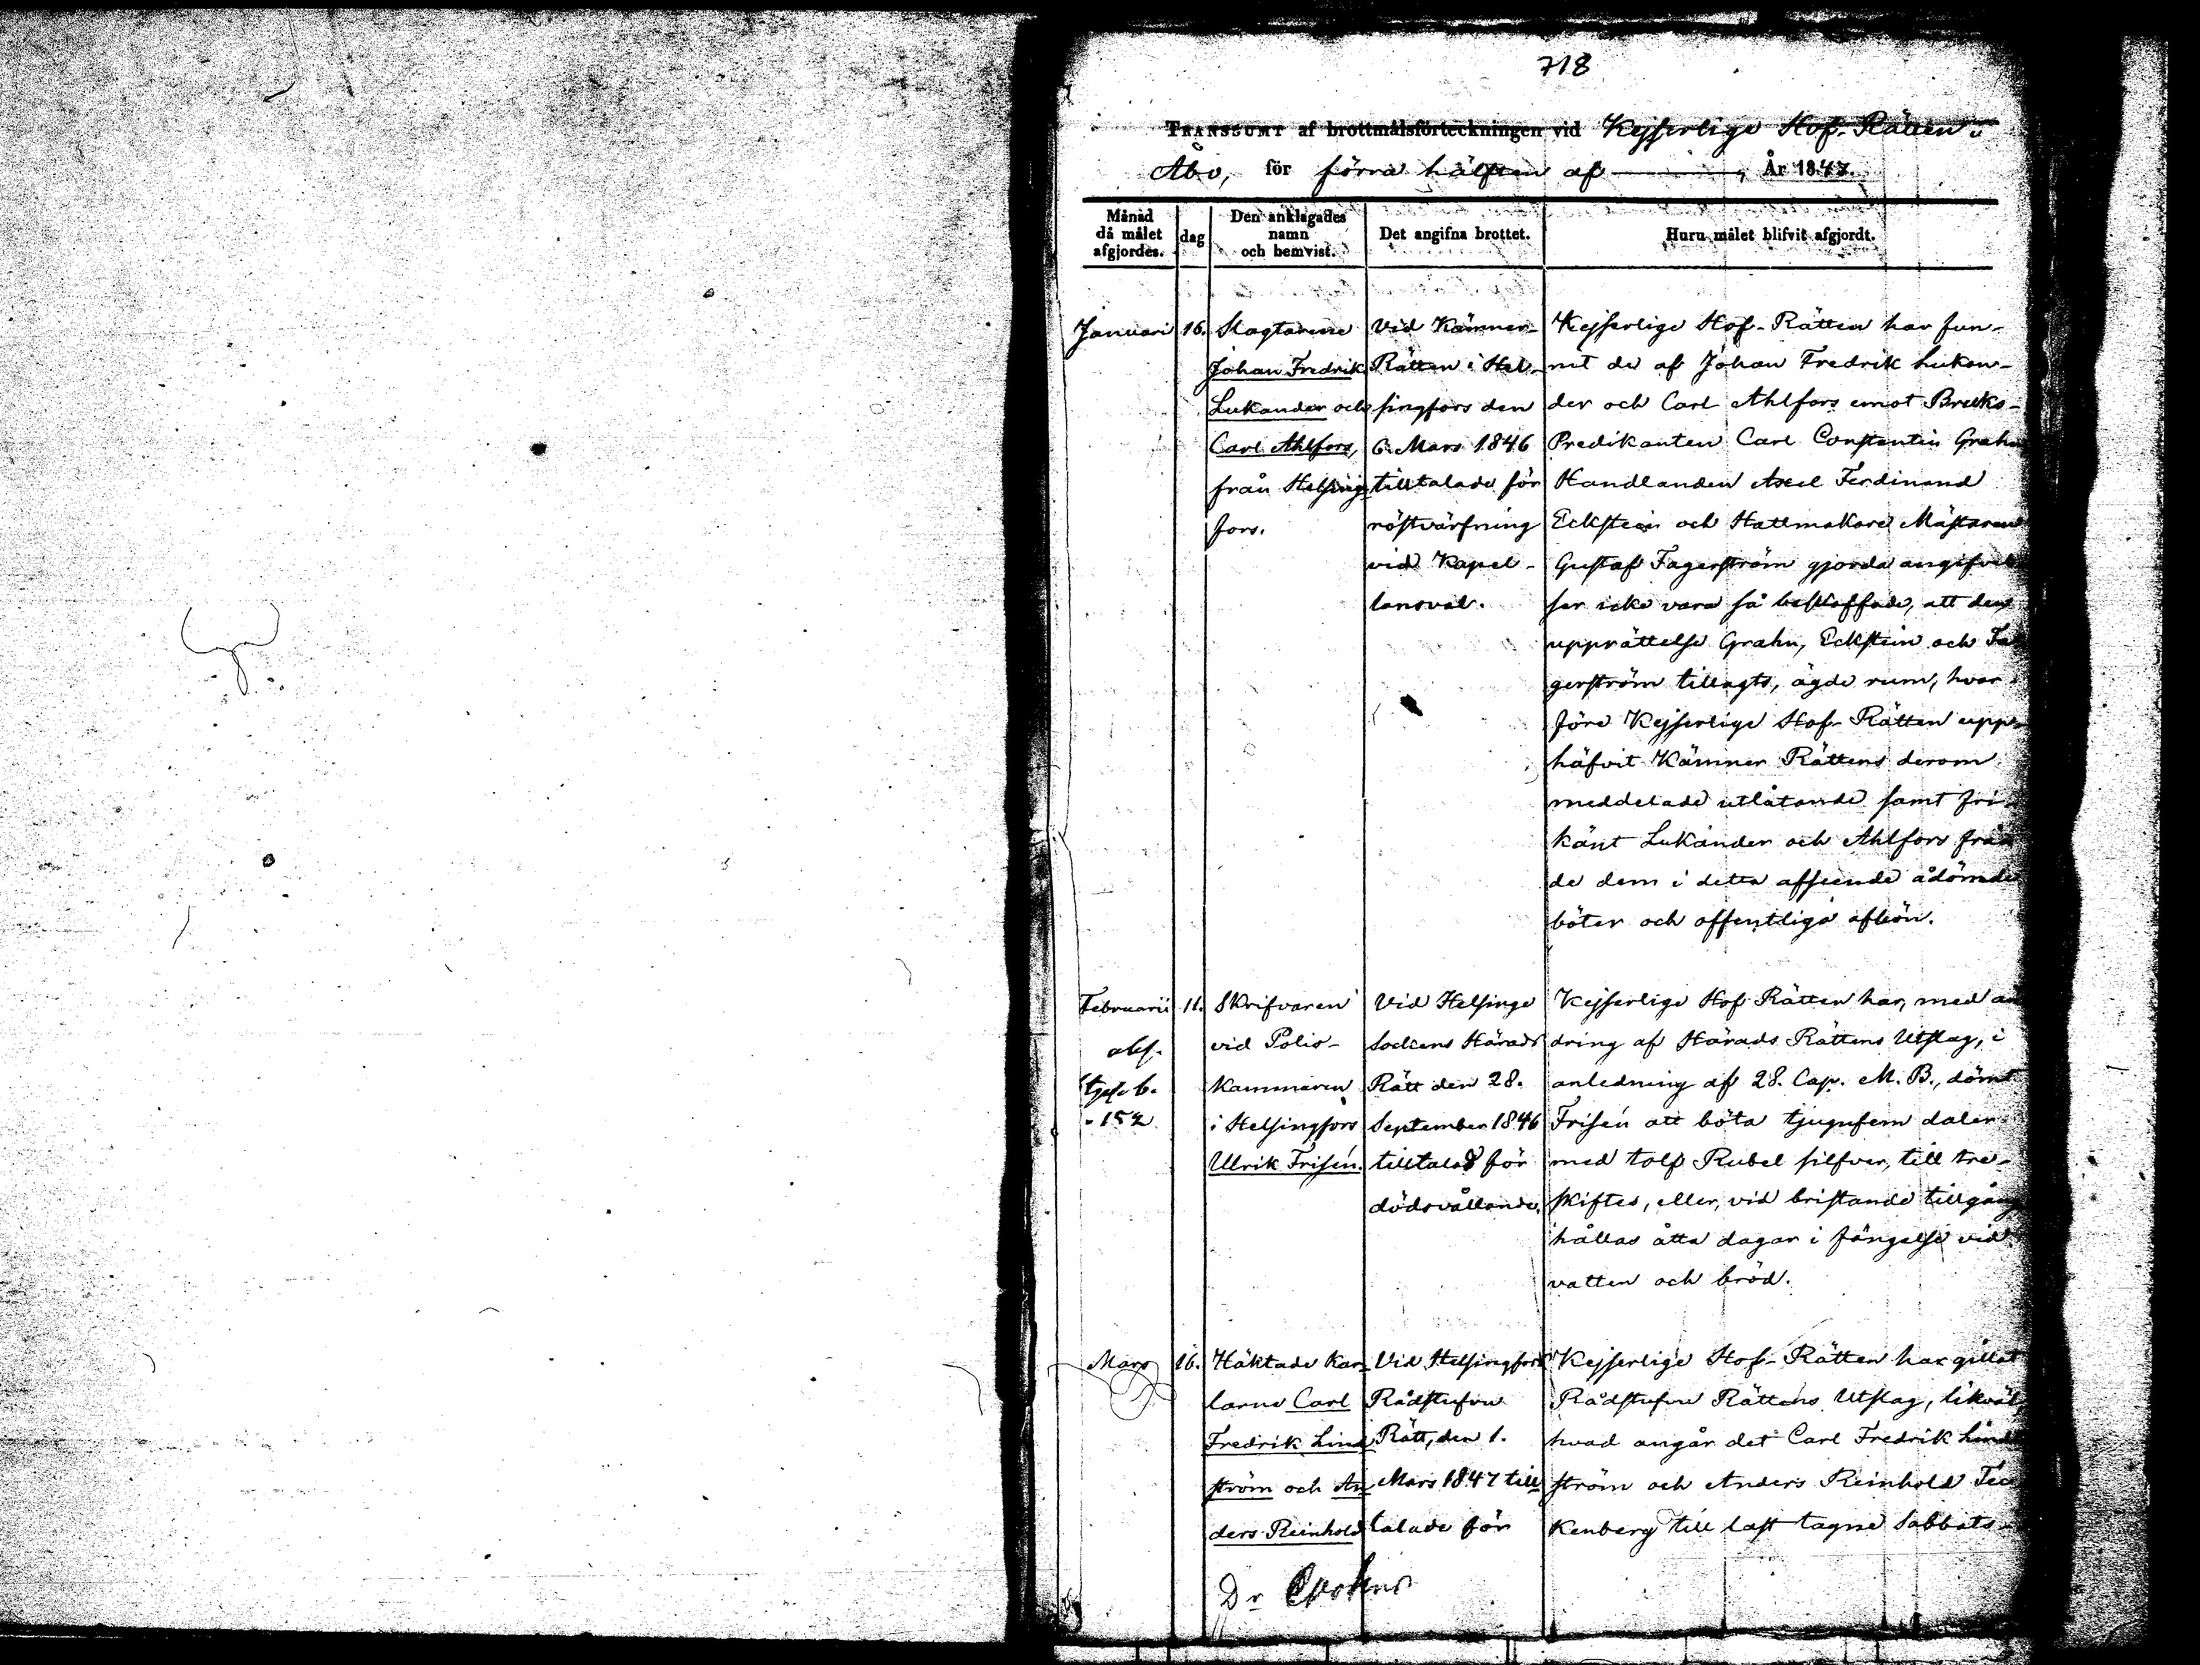 718
TRANSSUMT af brottmålsförteckningen vid Kejserlige Hof-Rätten i
Åbo, för förra hälften af ———, År 1847.
Månad
då målet
afgjordes.
dag
Den anklagades
namn
och hemvist.
Det angifna brottet.
Huru målet blifvit afgjordt.
Januari
16.
Slagtarene
Johan Fredrik
Lukander och
Carl Ahlfors,
från Helsing
fors.
Vid Kämner-
Rätten i Hel-
singfors den
6. Mars 1846
tilltalade för
röstvärfning
vid Kapel-
lansval.
Kejserlige Hof-Rätten har fun-
nit de af Johan Fredrik Lukan-
der och Carl Ahlfors emot Bruks-
Predikanten Carl Constantin Grahn
Handlanden Axel Ferdinand
Eckstein och Hattmakare Mästaren
Gustaf Fagerström gjorda angifvel
ser icke vara så beskaffade, att den
upprättelse Grahn, Eckstein och Fa
gerström tillagts, ägde rum, hvar-
före Kejserlige Hof-Rätten upp-
häfvit Kämner Rättens derom
meddelade utlåtande samt fri-
känt Lukander och Ahlfors från
de dem i detta afseende ådömde
böter och offentliga afbön.
Februarii
11.
152
Skrifvaren
vid Polis-
kammaren
i Helsingfors
Ulrik Frisén.
Vid Helsinge
Sockens Härads
Rätt den 28.
September 1846
tilltalad för
dödsvållande.
Kejserlige Hof Rätten har, med än
dring af Härads Rättens Utslag, i
anledning af 28. Cap. M. B., dömt
Frisén att böta tjugufem daler
med tolf Rubel silfver, till tre-
skiftes, eller, vid bristande tillgång
hållas åtta dagar i fängelse vid
vatten och bröd.
Mars
16.
Häktade Kar-
larne Carl
Fredrik Lind
ström och An
ders Reinhold
Vid Helsingfors
Rådstufvu
Rätt, den 1.
Mars 1847 till
talade för
Kejserlige Hof-Rätten har gillat
Rådstufvu Rättens Utslag, likväl
hvad angår det Carl Fredrik Lind
ström och Anders Reinhold Tec
kenberg till last tagne Sabbats-
Dr